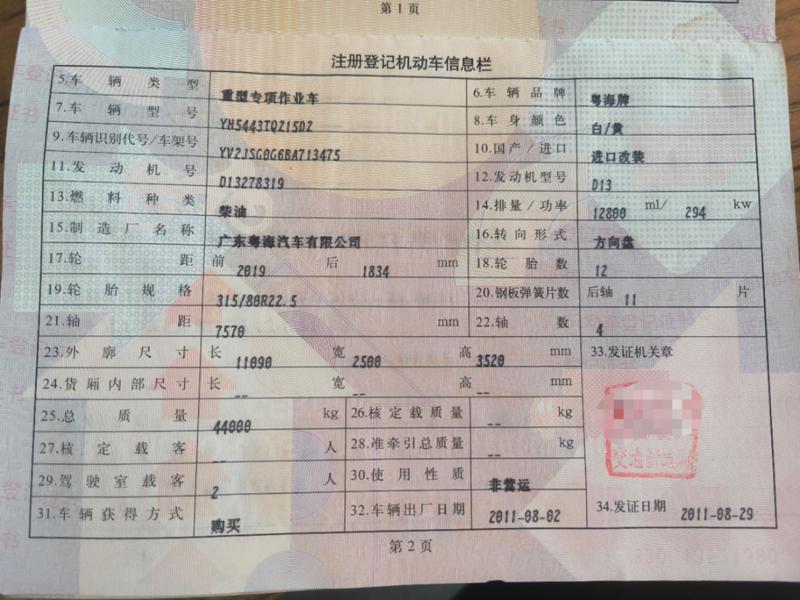 第1页
注册登记机动车信息栏
5.车辆类型 重型专项作业车 6.车辆品牌 粤海牌
7.车辆型号 YH5443TQZ15DZ 8.车身颜色 白/黄
9.车辆识别代号/车架号 YV2JSG0G6BA713475 10.国产/进口 进口改装
11.发动机号 D13278319 12.发动机型号 D13
13.燃料种类 柴油 14.排量/功率 12800 ml/ 294 kw
15.制造厂名称 广东粤海汽车有限公司 16.转向形式 方向盘
17.轮距 前 2019 后 1834 mm 18.轮胎数 12
19.轮胎规格 315/80R22.5 20.钢板弹簧片数 后轴 11 片
21.轴距 7570 mm 22.轴数 4
23.外廓尺寸 长 11090 宽 2500 高 3520 mm 33.发证机关章
24.货厢内部尺寸 长 -- 宽 -- 高 -- mm
25.总质量 44000 kg 26.核定载质量 -- kg
27.核定载客 -- 人 28.准牵引总质量 -- kg
交通
29.驾驶室载客 2 人 30.使用性质 非营运
31.车辆获得方式 购买 32.车辆出厂日期 2011-08-02 34.发证日期 2011-08-29
第2页